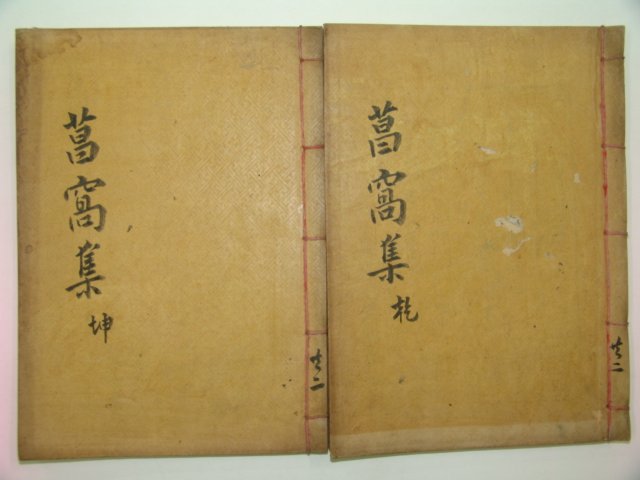 菖窩集
乾
共二
菖窩集
坤
共二